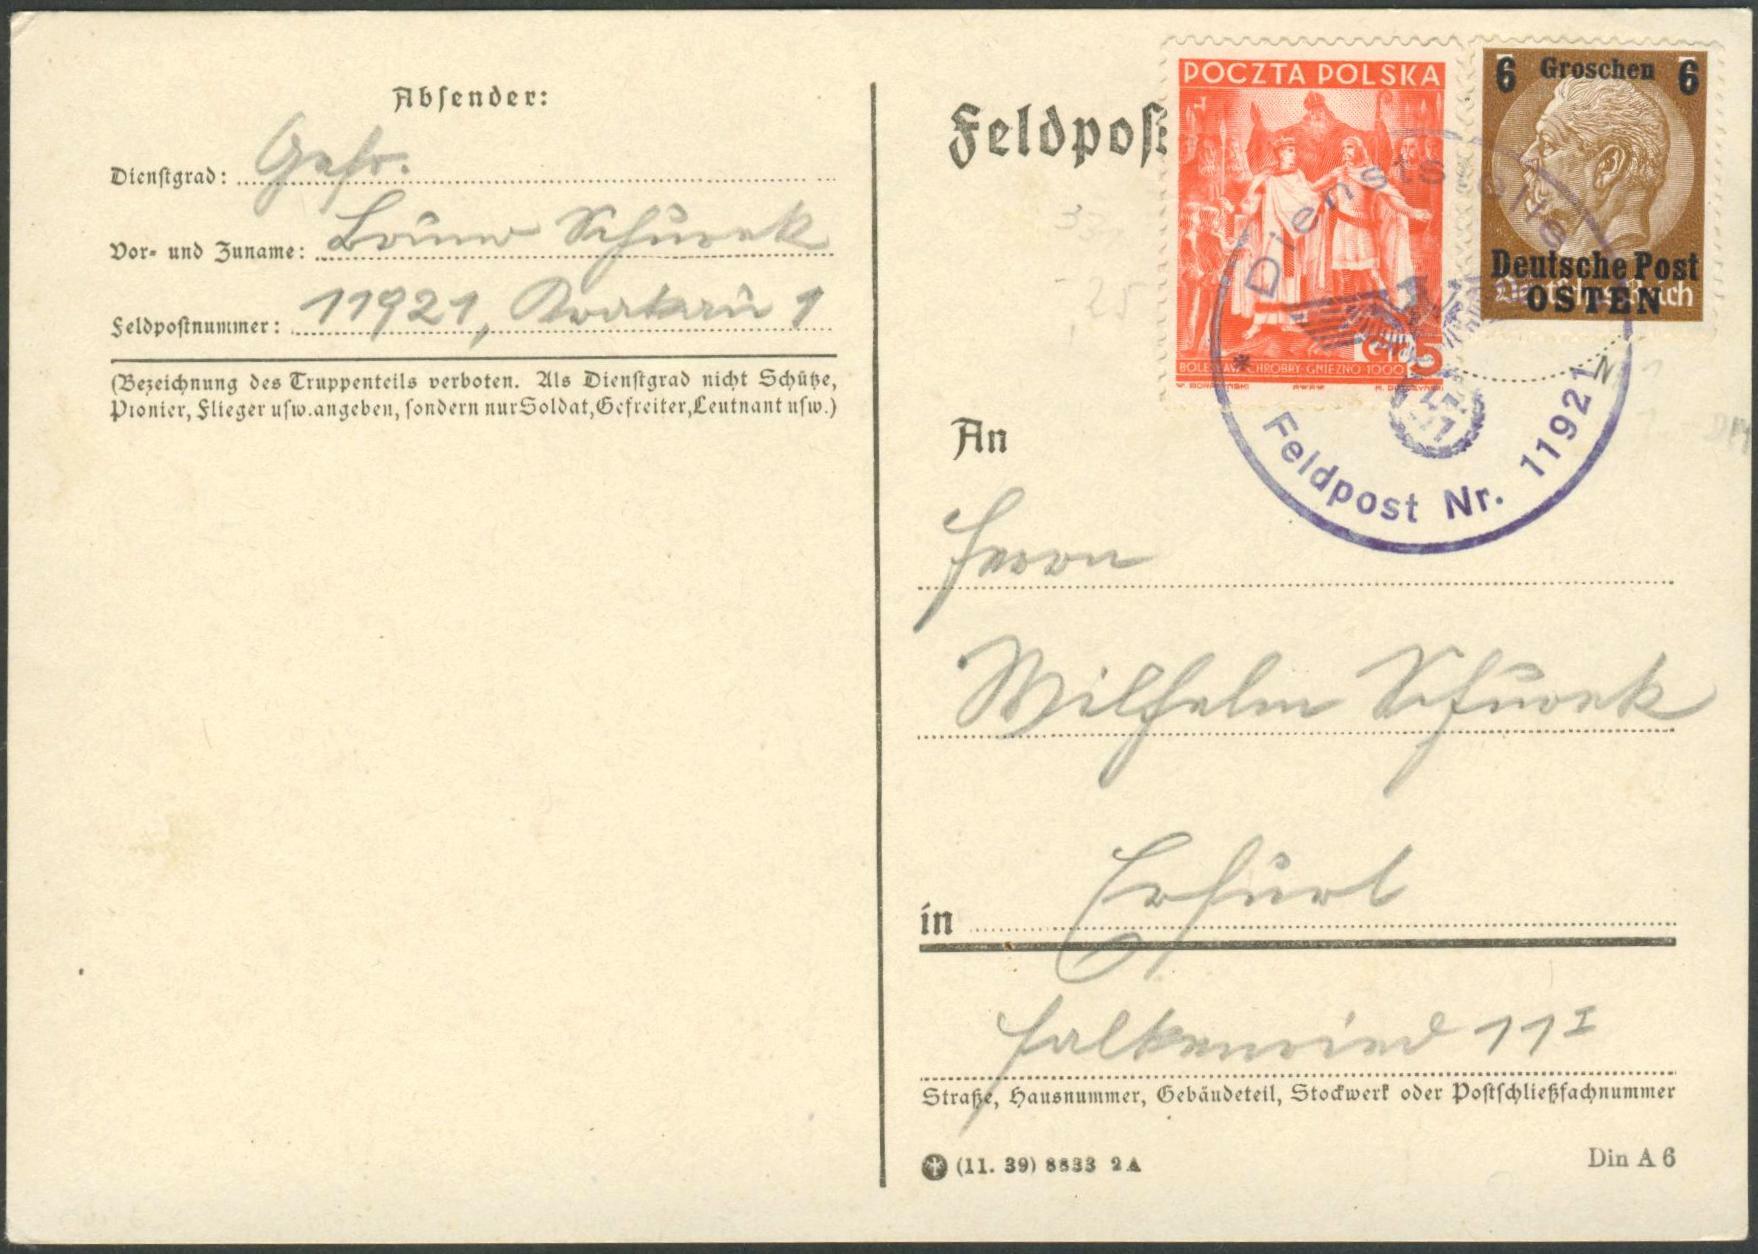 Absender:
Dienstgrad: Gefr.
Vor- und Zuname: Bruno Schurek
Feldpostnummer: 11921, Krakau 1
(Bezeichnung des Truppenteils verboten. Als Dienstgrad nicht Schütze,
Pionier, Flieger usw. angeben, sondern nur Soldat, Gefreiter, Leutnant usw.)
Feldpost
POCZTA POLSKA
GR 5
BOLESŁAW CHROBRY-GNIEZNO-1000
6 Groschen 6
Deutsche Post
OSTEN
Deutsches Reich
Dienststelle
* Feldpost Nr. 11921
An
Herrn
Wilhelm Schurek
in Erfurt
Falkenried 11 I
Straße, Hausnummer, Gebäudeteil, Stockwerk oder Postschließfachnummer
(11. 39) 8833 2A
Din A 6